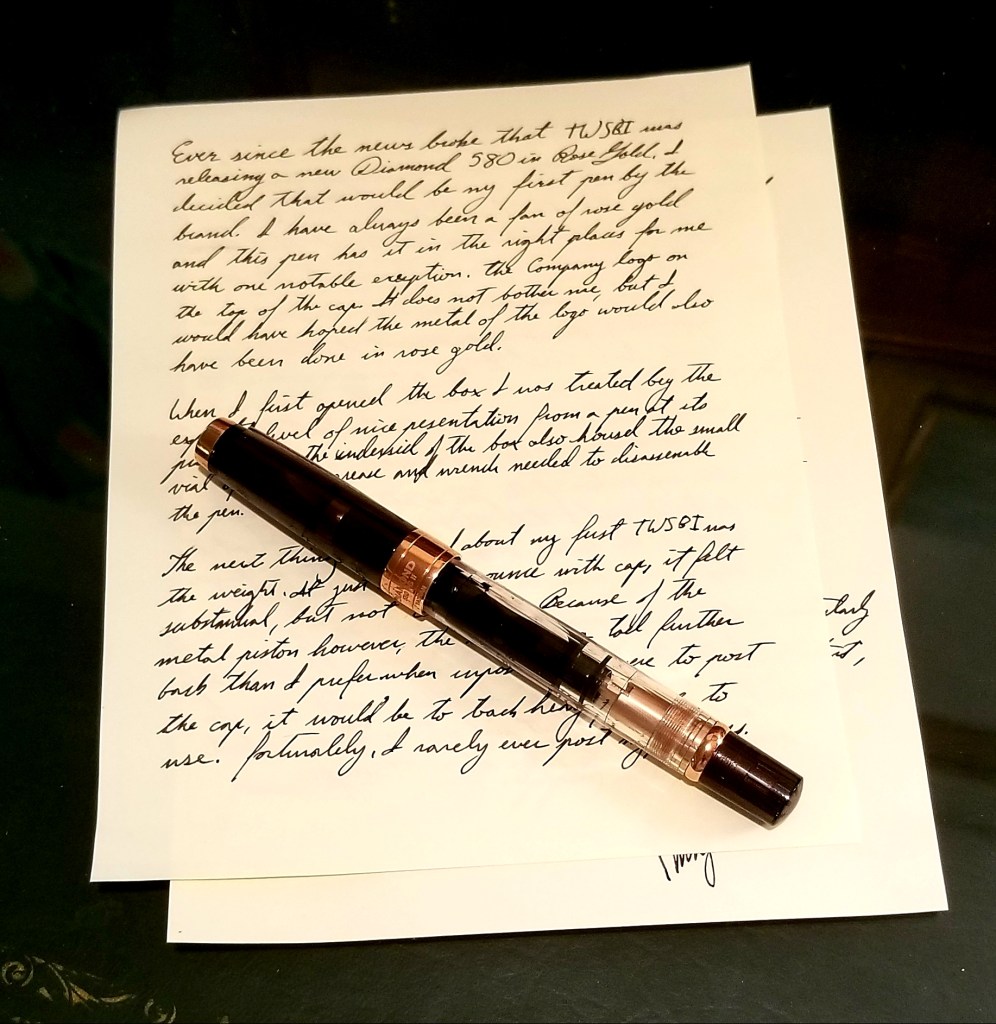 Ever since the news broke that TWSBI was
releasing a new Diamond 580 in Rose Gold, I
decided that would be my first pen by the
brand. I have always been a fan of rose gold
and this pen has it in the right places for me
with one notable exception. the Company logo on
the top of the cap. It does not bother me, but I
would have hoped the metal of the logo would also
have been done in rose gold.
When I first opened the box I was treated by the
level of nice presentation from a pen at its
the undersid of the box also housed the small
vial and wrench needed to disassemble
the pen.
The next thing about my first TWSBI was
the weight. At just ounce with cap, it felt
substantial, but not Because of the
metal piston however, the tall further
back than I prefer when to post
the cap, it would be to back heavy to
use. fortunately, I rarely ever post